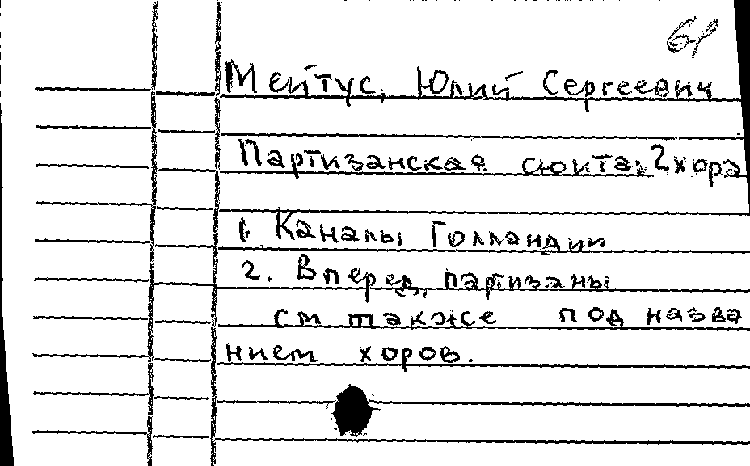 61
Мейтус, Юлий Сергеевич
Партизанская сюита. 2 хора
1. Каналы Голландии
2. Вперед, партизаны
см также под назва
нием хоров.